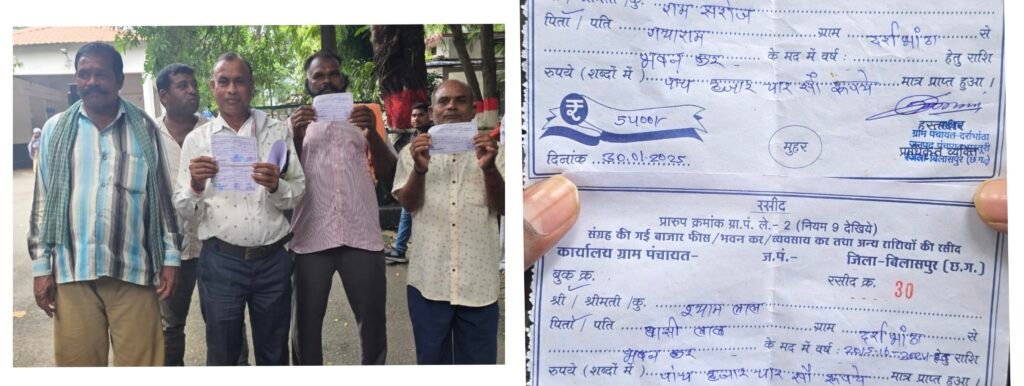 श्री / श्रीमती /कु. राम सरोज
पिता / पति गयाराम ग्राम दर्राभांठा से
भवन कर के मद में वर्ष : हेतु राशि
रुपये (शब्दों में ) पांच हजार चार सौ रूपये मात्र प्राप्त हुआ ।
₹ 5400/
हस्ताक्षर
ग्राम पंचायत-दर्राभांठा
मुहर
प्राधिकृत व्यक्ति
जिला-बिलासपुर (छ.ग.)
दिनांक 2025
रसीद
प्रारुप क्रमांक ग्रा.पं. ले.- 2 (नियम 9 देखिये)
संग्रह की गई बाजार फीस/भवन कर/व्यवसाय कर तथा अन्य राशियों की रसीद
कार्यालय ग्राम पंचायत- ज.पं.- जिला-बिलासपुर (छ.ग.)
बुक क्र. रसीद क्र. 30
श्री / श्रीमती /कु. श्याम लाल
पिता / पति लाल ग्राम दर्राभांठा से
भवन कर के मद में वर्ष : हेतु राशि
रुपये (शब्दों में ) पांच हजार चार सौ रूपये मात्र प्राप्त हुआ ।